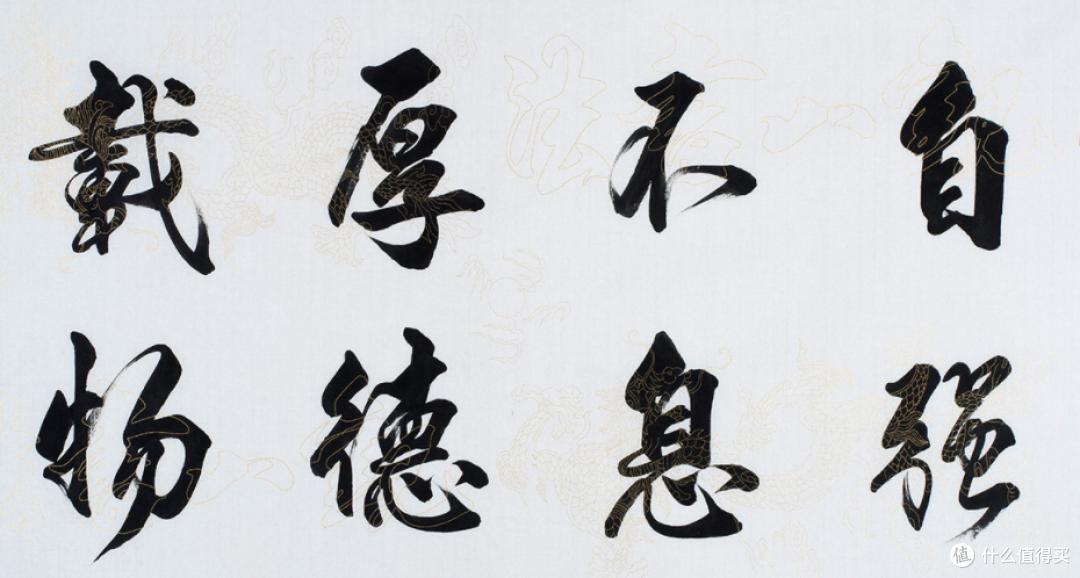 自强
不息
厚德
载物
值 什么值得买